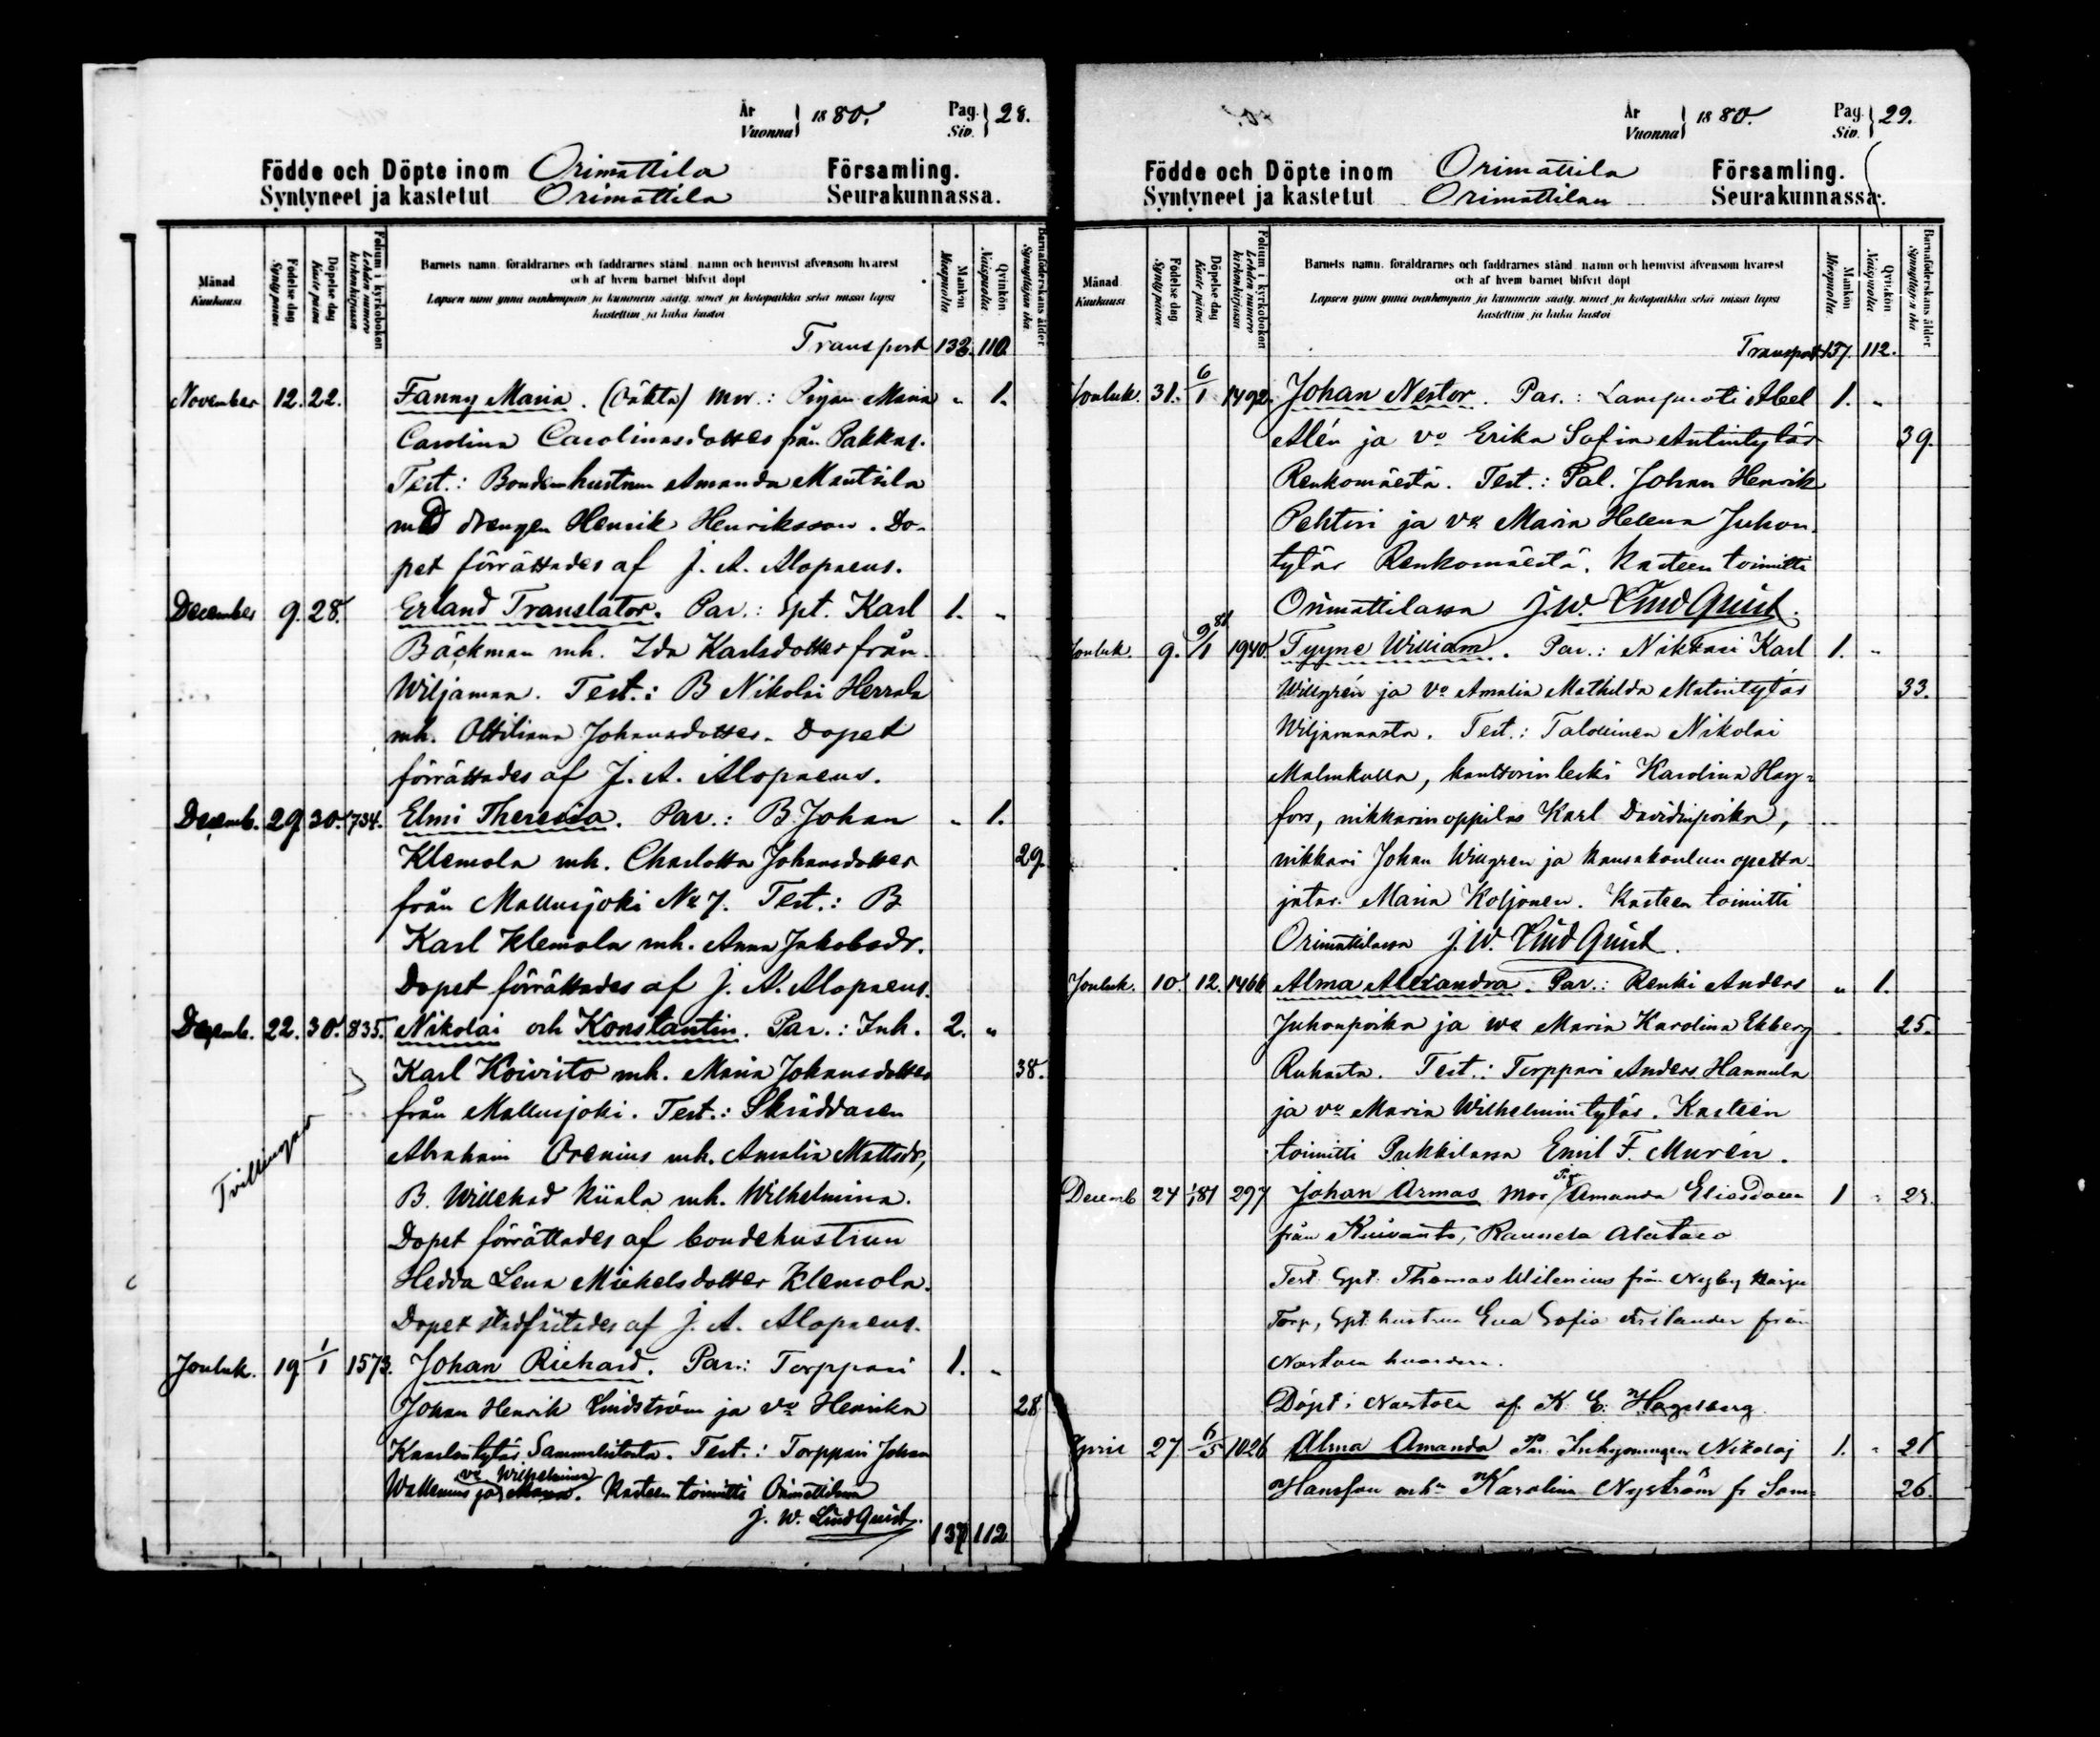 År
Vuonna } 1880.
Pag.
Siv. } 28.
Födde och Döpte inom Orimattila Församling.
Syntyneet ja kastetut Orimattila Seurakunnassa.
Månad
Kuukausi
Födelse dag
Synty päivä
Döpelse dag
Kaste päivä
Folium i kyrkoboken
Lehden numero kirkonkirjassa
Barnets namn, föräldrarnes och faddrarnes stånd, namn och hemvist äfvensom hvarest
och af hvem barnet blifvit döpt
Lapsen nimi ynnä vanhempain ja kummein sääty, nimet ja kotopaikka sekä missä lapsi
kastettiin ja kuka kastoi
Mankön
Miespuolia
Qvinkön
Naispuolia
Barnaföderskans ålder
Synnyttäjän ikä
Transport 132. 110.
November 12. 22. Fanny Maria. (Oäkta) Mor.: Pigan Maria „ 1.
Carolina Carolinasdotter från Pakkas.
Test.: Bondenhustrun Amanda Mantsila
med drengen Henrik Henriksson. Do-
pet förrättades af J. A. Alopaeus.
December 9. 28. Erland Translator. Par.: Spt. Karl 1. „
Bäckman mh. Ida Karlsdotter från
Wiljamaa. Test.: B Nikolai Herrala
mh. Ottiliana Johansdotter. Dopet
förrättades af J. A. Alopaeus.
Decemb. 29. 30. 734. Elmi Theresia. Par.: B. Johan „ 1.
Klemola mh. Charlotta Johansdotter 29.
från Mallusjoki No 7. Test.: B
Karl Klemola mh. Anna Jakobsdr.
Dopet förrättades af J. A. Alopaeus.
Decemb. 22. 30. 835. Nikolai och Konstantin. Par.: Inh. 2. „
Karl Koivisto mh. Maria Johansdotter 38.
från Mallusjoki. Test.: Skräddaren
Tvillingar
Abraham Orenius mh. Amalia Mattsdr,
B. Willehad Kiiala mh. Wilhelmina.
Dopet förrättades af bondehustrun
Hedda Lena Michelsdotter Klemola.
Dopet stadfästades af J. A. Alopaeus.
Jouluk. 19 1/1 1573. Johan Richard. Par.: Torppari 1. „
Johan Henrik Lindström ja vo Henrika 28
Kaarlentytär Sammalistosta. Test.: Torppari Johan
vo Wilhelmina
Wallenius ja Maria. Kasteen toimitti Orimattilassa
J. W. LindQuist.
137 112
År
Vuonna } 1880.
Pag.
Siv. } 29.
Födde och Döpte inom Orimattila Församling.
Syntyneet ja kastetut Orimattilan Seurakunnassa.
Månad
Kuukausi
Födelse dag
Synty päivä
Döpelse dag
Kaste päivä
Folium i kyrkoboken
Lehden numero kirkonkirjassa
Barnets namn, föräldrarnes och faddrarnes stånd, namn och hemvist äfvensom hvarest
och af hvem barnet blifvit döpt
Lapsen nimi ynnä vanhempain ja kummein sääty, nimet ja kotopaikka sekä missä lapsi
kastettiin ja kuka kastoi
Mankön
Miespuolia
Qvinkön
Naispuolia
Barnaföderskans ålder
Synnyttäjän ikä
Transport 137. 112.
Jouluk. 31. 6/1 1492. Johan Nestor. Par.: Lampuoti Abel 1. „
Alén ja vo Erika Sofia Antintytär 39.
Renkomäestä. Test.: Tal. Johan Henrik
Pehtiri ja vo Maria Helena Juhon-
tytär Renkomäestä. Kasteen toimitti
Orimattilassa J. W. LindQuist.
Jouluk. 9. 9/1 81 1940. Tyyne William. Par.: Nikkari Karl 1. „
Willgrén ja vo Amalia Mathilda Matintytär 33.
Wiljamaasta. Test.: Talollinen Nikolai
Malmkulla, kanttorin leski Karolina Hag-
fors, nikkarinoppilas Karl Davidinpoika,
nikkari Johan Willgren ja kansakoulun opetta-
jatar Maria Koljonen. Kasteen toimitti
Orimattilassa J. W. LindQuist.
Jouluk. 10. 12. 1466 Alma Alexandra. Par.: Renki Anders „ 1.
Juhonpoika ja vo Maria Karolina Ekberg 25.
Ruhasta. Test.: Torppari Anders Hannula
ja vo Maria Wilhelmintytär. Kasteen
toimitti Pukkilassa Emil F. Murén.
Decemb 24 1/1 81 297 Johan Armas Mor Pig. Amanda Eliasdotter 1 „
från Kuivanto, Raunela
Test. Spt. Thomas Wilenius från Nyby
Torp, Spt. hustrun Eva Sofia från
Nastola
Döpt i Nastola af K. E. Hagelberg
27 6/5 1026 Alma Amanda Par. Inhysningen Nikolaj 1. „ 21
Hansson mhu Karolina Nyström fr Sam= 26.